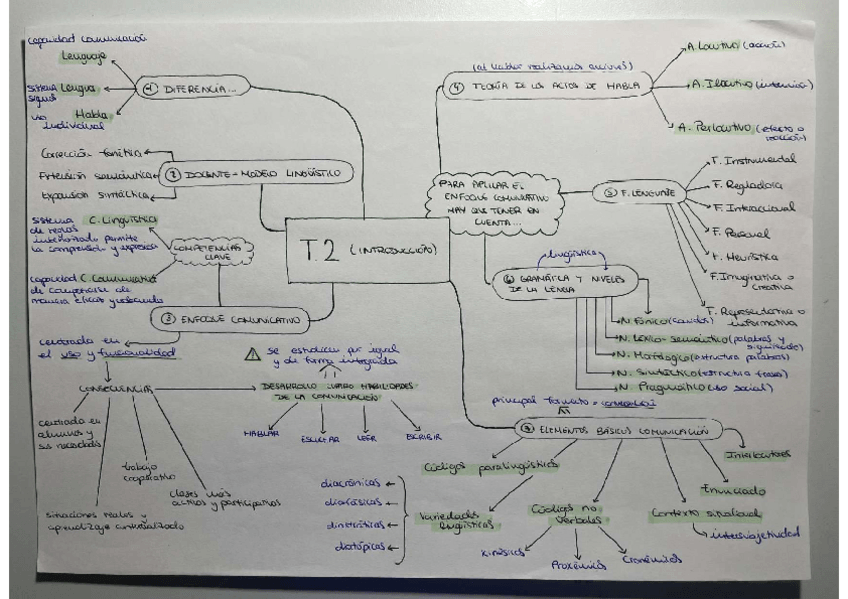 capacidad comunicación
Lenguaje
sistema
signos
Lengua
Habla
uso
individual
① DIFERENCIA...
Corrección fonética
Extensión semántica
Expansión sintáctica
② DOCENTE - MODELO LINGÜÍSTICO
sistema
de reglas
interiorizado permite
la comprensión y expresión
C. Lingüística
COMPETENCIAS
CLAVE
capacidad
C. Comunicativa
de comunicarse de
manera eficaz y adecuada
③ ENFOQUE COMUNICATIVO
centrado en
el uso y funcionalidad
CONSECUENCIAS
centrado en
alumnos y
sus necesidades
trabajo
cooperativo
clases más
activas y participativas
situaciones reales y
aprendizaje contextualizado
se estudian por igual
y de forma integrada
DESARROLLO CUATRO HABILIDADES
DE LA COMUNICACIÓN
HABLAR
ESCUCHAR
LEER
ESCRIBIR
T.2 (INTRODUCCIÓN)
PARA APLICAR EL
ENFOQUE COMUNICATIVO
HAY QUE TENER EN
CUENTA...
(al hablar realizamos acciones)
④ TEORÍA DE LOS ACTOS DE HABLA
A. Locutivo (acción)
A. Ilocutivo (intención)
A. Perlocutivo (efecto o
reacción)
⑤ F. LENGUAJE
F. Instrumental
F. Reguladora
F. Interaccional
F. Personal
F. Heurística
F. Imaginativa o
creativa
F. Representativa o
informativa
lingüística
⑥ GRAMÁTICA Y NIVELES
DE LA LENGUA
N. Fónico (sonidos)
N. Léxico-semántico (palabras y
significado)
N. Morfológico (estructura palabras)
N. Sintáctico (estructura frases)
N. Pragmático (uso social)
principal formato =
ELEMENTOS BÁSICOS COMUNICACIÓN
Interlocutores
Enunciado
Contexto situacional
intersubjetividad
Códigos no
verbales
kinésicos
Proxémicos
Cronémicos
Códigos paralingüísticos
Variedades
lingüísticas
diacrónicas
diafásicas
diastráticas
diatópicas